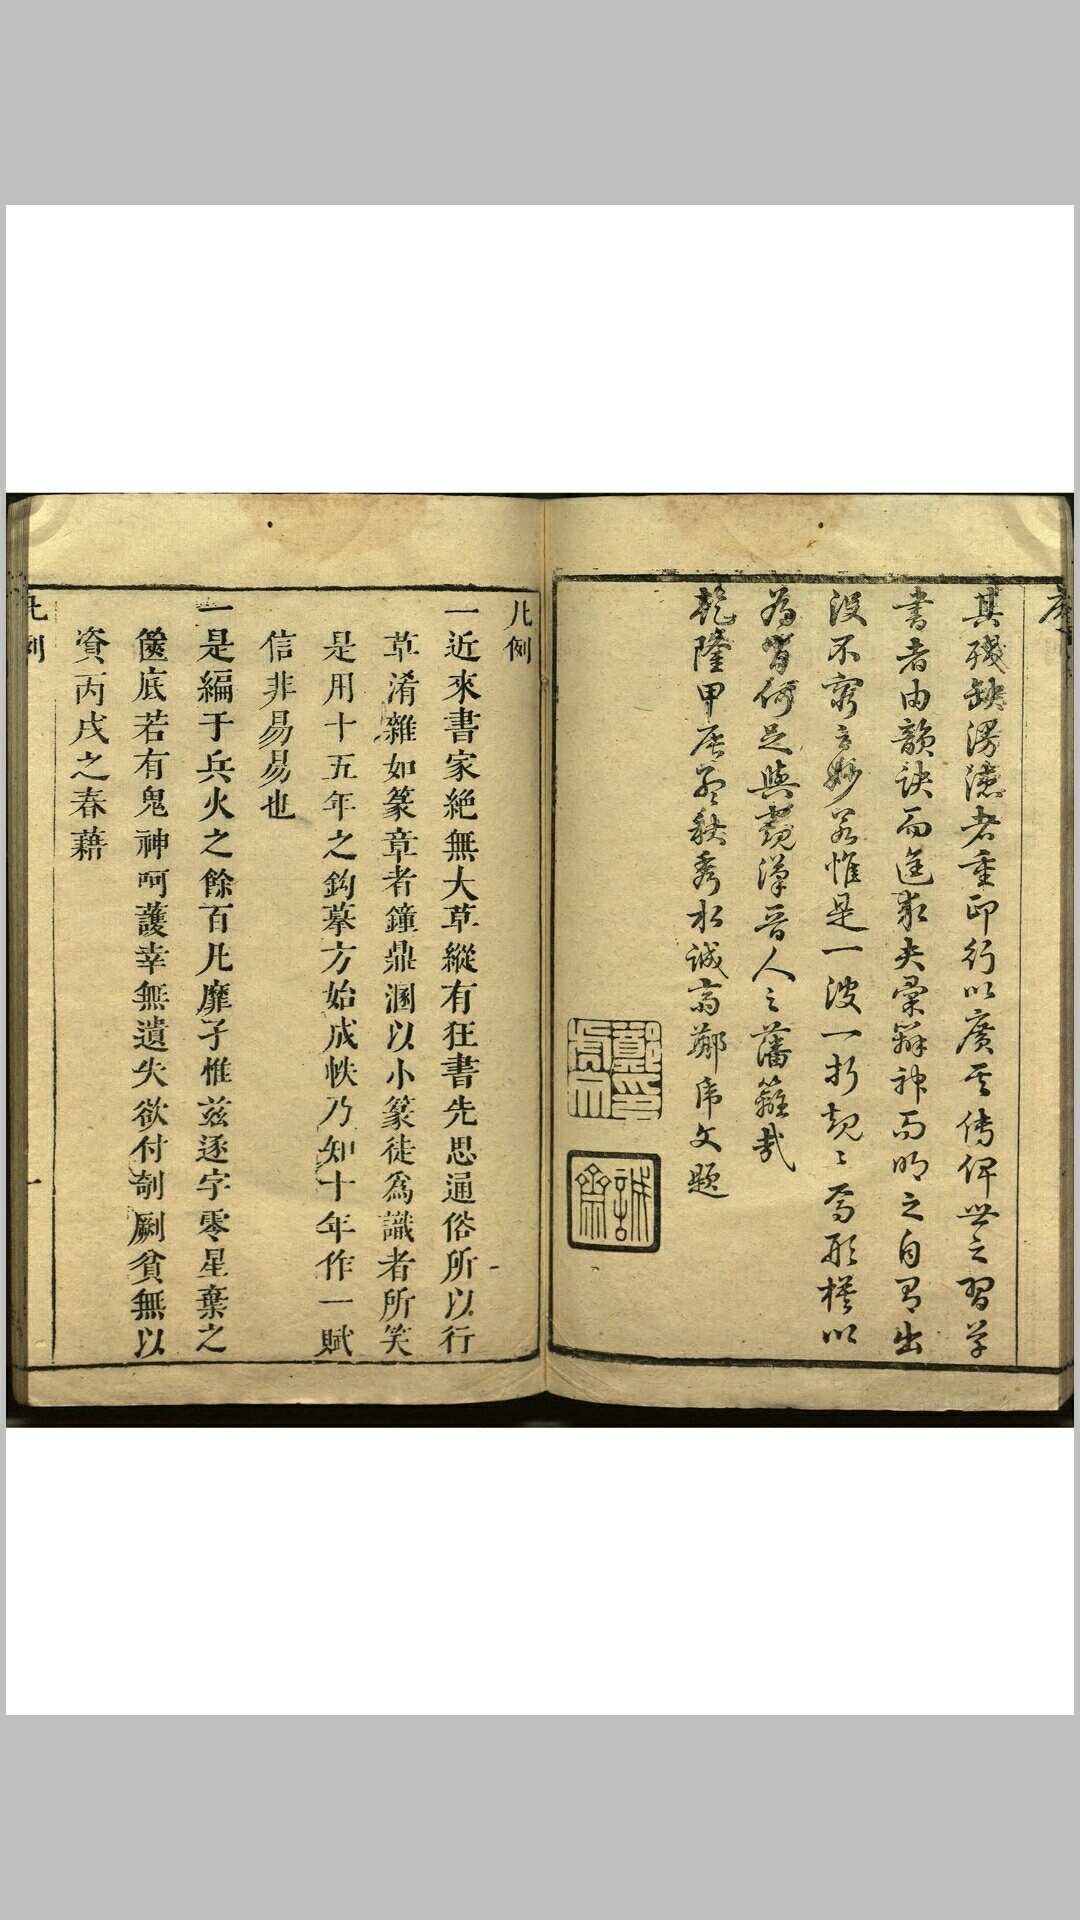 序
其殘缺漫漶者重印行以廣其傳俾世之習草
書者由韻訣而進求夫彙辯神而明之自有出
沒不窮之妙若惟是一波一折規〻焉形模以
為首何足與窺漢晉人之藩籬哉
乾隆甲辰孟秋秀水誠齋鄭虎文題
誠齋
凡例
一近來書家絕無大草縱有狂書先思通俗所以行
草淆雜如篆章者鐘鼎溷以小篆徒為識者所笑
是用十五年之鈎摹方始成帙乃知十年作一賦
信非易易也
一是編于兵火之餘百凡靡孑惟茲逐字零星棄之
篋底若有鬼神呵護幸無遺失欲付剞劂貧無以
資丙戌之春藉
凡例
一